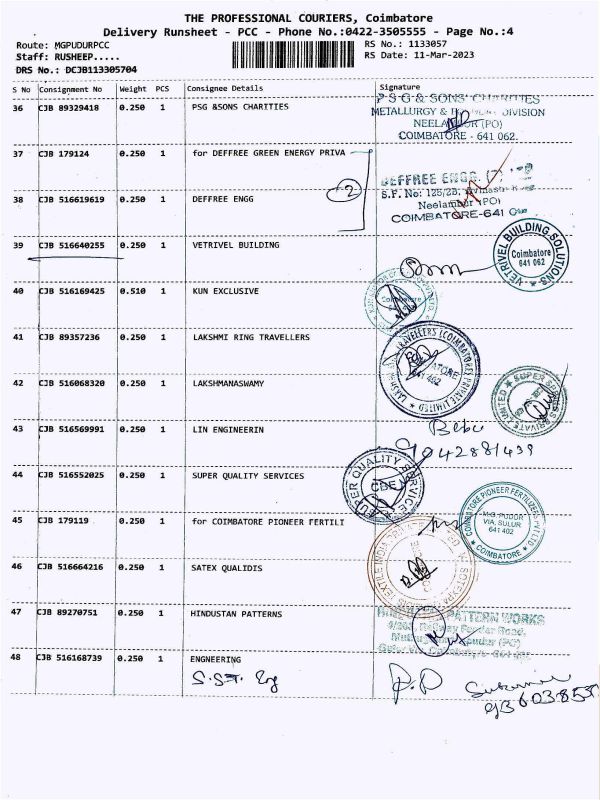 THE PROFESSIONAL COURIERS, Coimbatore
Delivery Runsheet - PCC - Phone No.:0422-3505555 - Page No.:4
Route: MGPUDURPCC RS No.: 1133057
Staff: RUSHEEP..... RS Date: 11-Mar-2023
DRS No.: DCJB113305704
S No Consignment No Weight PCS Consignee Details Signature
36 CJB 89329418 0.250 1 PSG &SONS CHARITIES
P S G & SONS' CHARITIES
METALLURGY & DIVISION
NEELA (PO)
COIMBATORE - 641 062.
37 CJB 179124 0.250 1 for DEFFREE GREEN ENERGY PRIVA
2
DEFFREE ENGG.
S.F. No: 125/2B,
38 CJB 516619619 0.250 1 DEFFREE ENGG
Neelambur (PO)
COIMBATORE-641
39 CJB 516640255 0.250 1 VETRIVEL BUILDING
VETRIVEL BUILDING SOLUTIONS
Coimbatore
641 062
40 CJB 516169425 0.510 1 KUN EXCLUSIVE
41 CJB 89357236 0.250 1 LAKSHMI RING TRAVELLERS
TRAVELLERS (COIMBATORE) PRIVATE LIMITED
42 CJB 516068320 0.250 1 LAKSHMANASWAMY
SUPER
PRIVATE LIMITED
43 CJB 516569991 0.250 1 LIN ENGINEERIN
9042881439
44 CJB 516552025 0.250 1 SUPER QUALITY SERVICES
SUPER QUALITY SERVICES
CBE
45 CJB 179119 0.250 1 for COIMBATORE PIONEER FERTILI
COIMBATORE PIONEER FERTILIZERS PVT LTD
M.G. PUDUR
VIA. SULUR
641 402
COIMBATORE
46 CJB 516664216 0.250 1 SATEX QUALIDIS
47 CJB 89270751 0.250 1 HINDUSTAN PATTERNS
PATTERN WORKS
Railway Feeder Road,
48 CJB 516168739 0.250 1 ENGNEERING
S.S.T. Eng